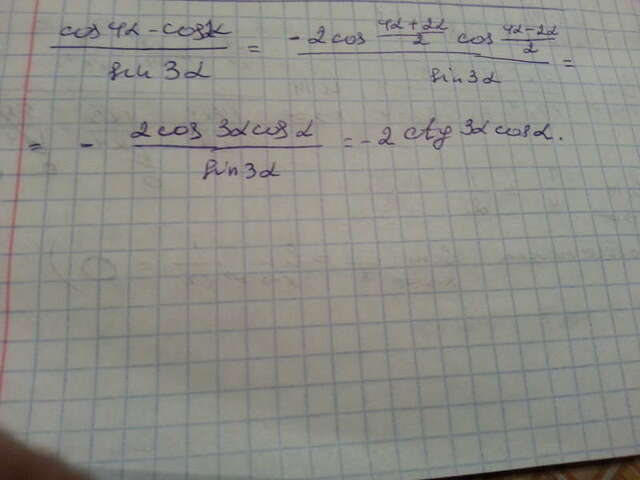 (cos 4α - cos 2α) / (sin 3α) = (-2 cos (4α + 2α)/2 cos (4α - 2α)/2) / (sin 3α) =
= - (2 cos 3α cos α) / (sin 3α) = -2 ctg 3α cos α.